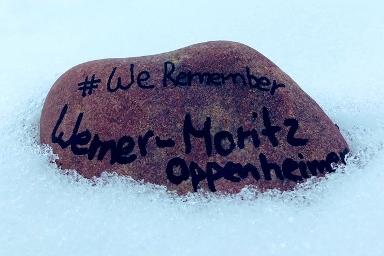 #We Remember
Werner-Moritz
Oppenheimer